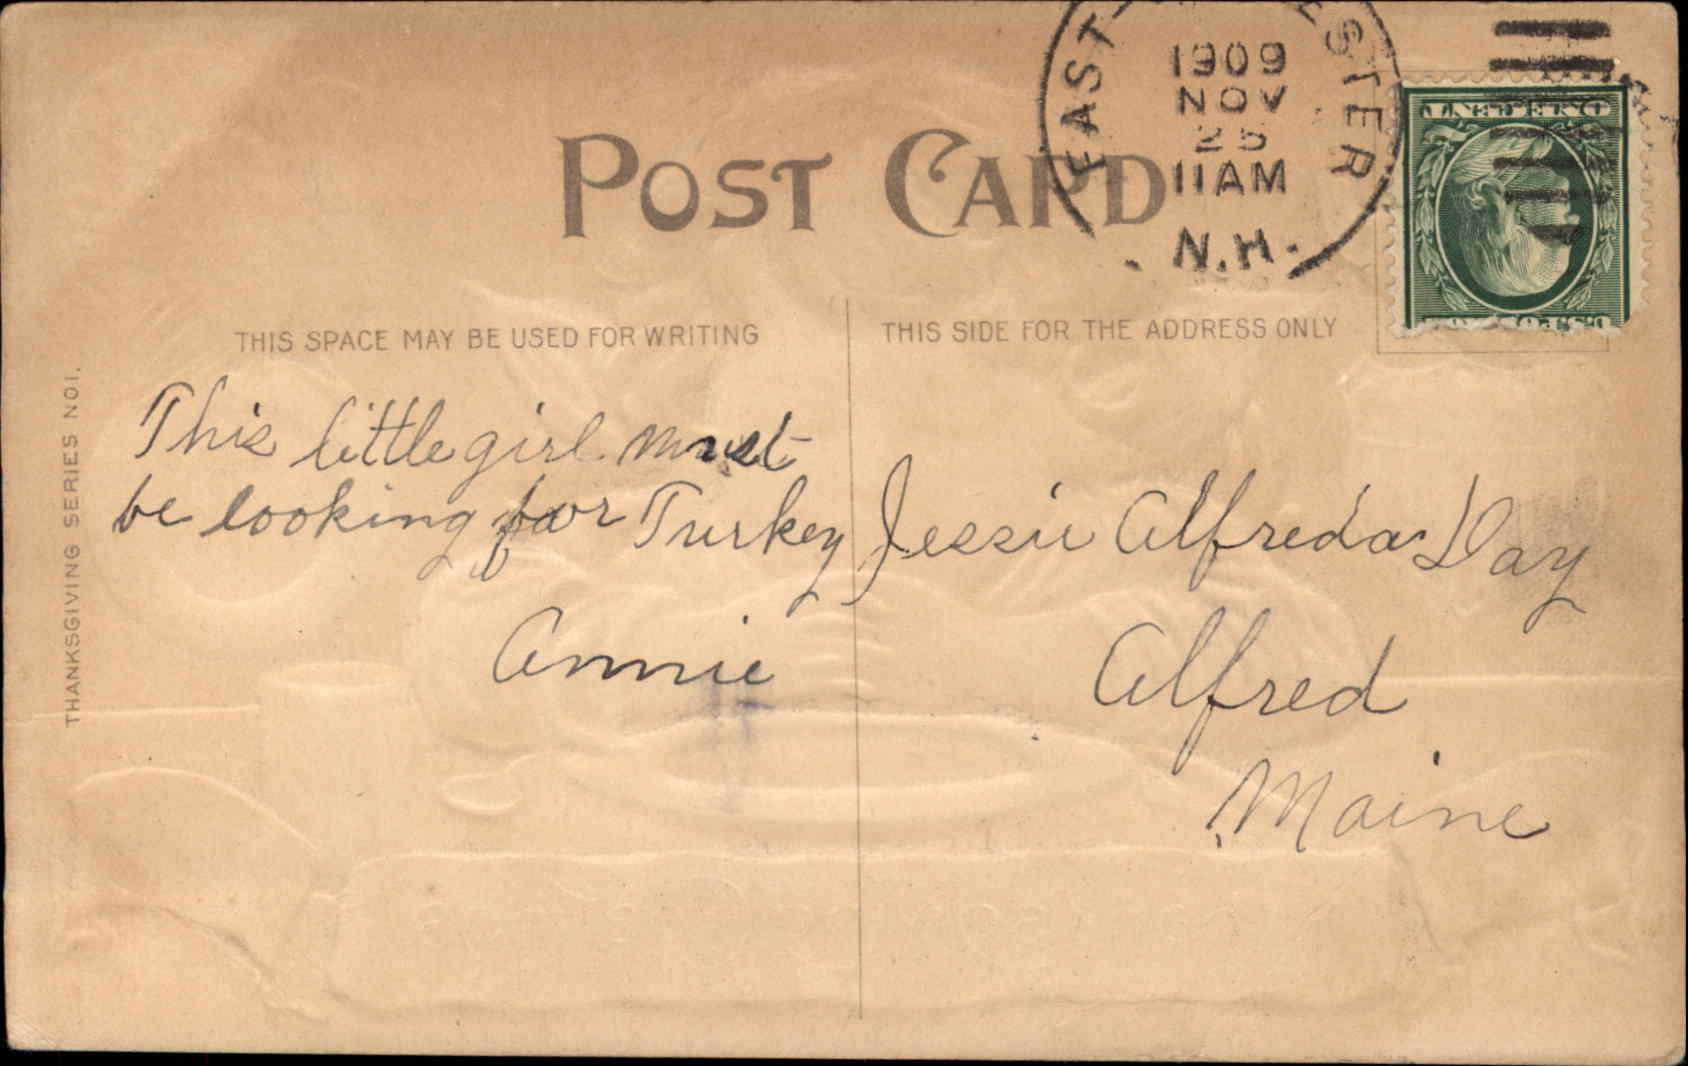 EAST ESTER
1909
NOV
25
11 AM
N.H.
ONE CENT
POST CARD
THIS SPACE MAY BE USED FOR WRITING
THIS SIDE FOR THE ADDRESS ONLY
THANKSGIVING SERIES NO 1.
This little girl must
be looking for Turkey
Annie
Jessie Alfreda Day
Alfred
Maine